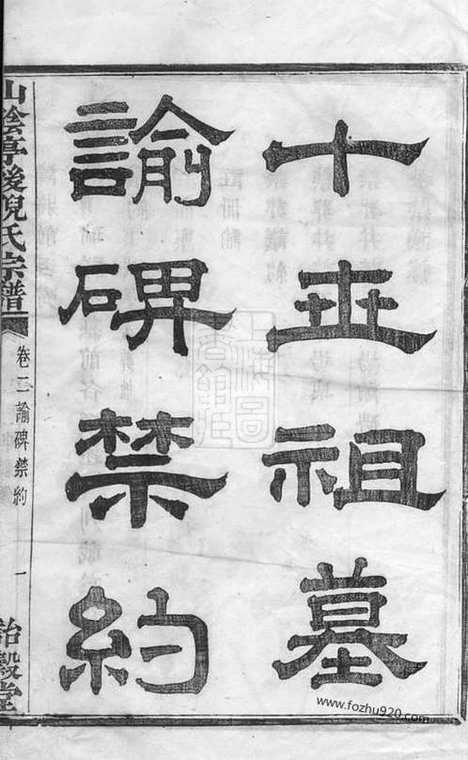 十世祖墓
諭碑禁約
山陰亭後倪氏宗譜
卷二諭碑禁約
一
詒穀堂
www.fozhu920.com